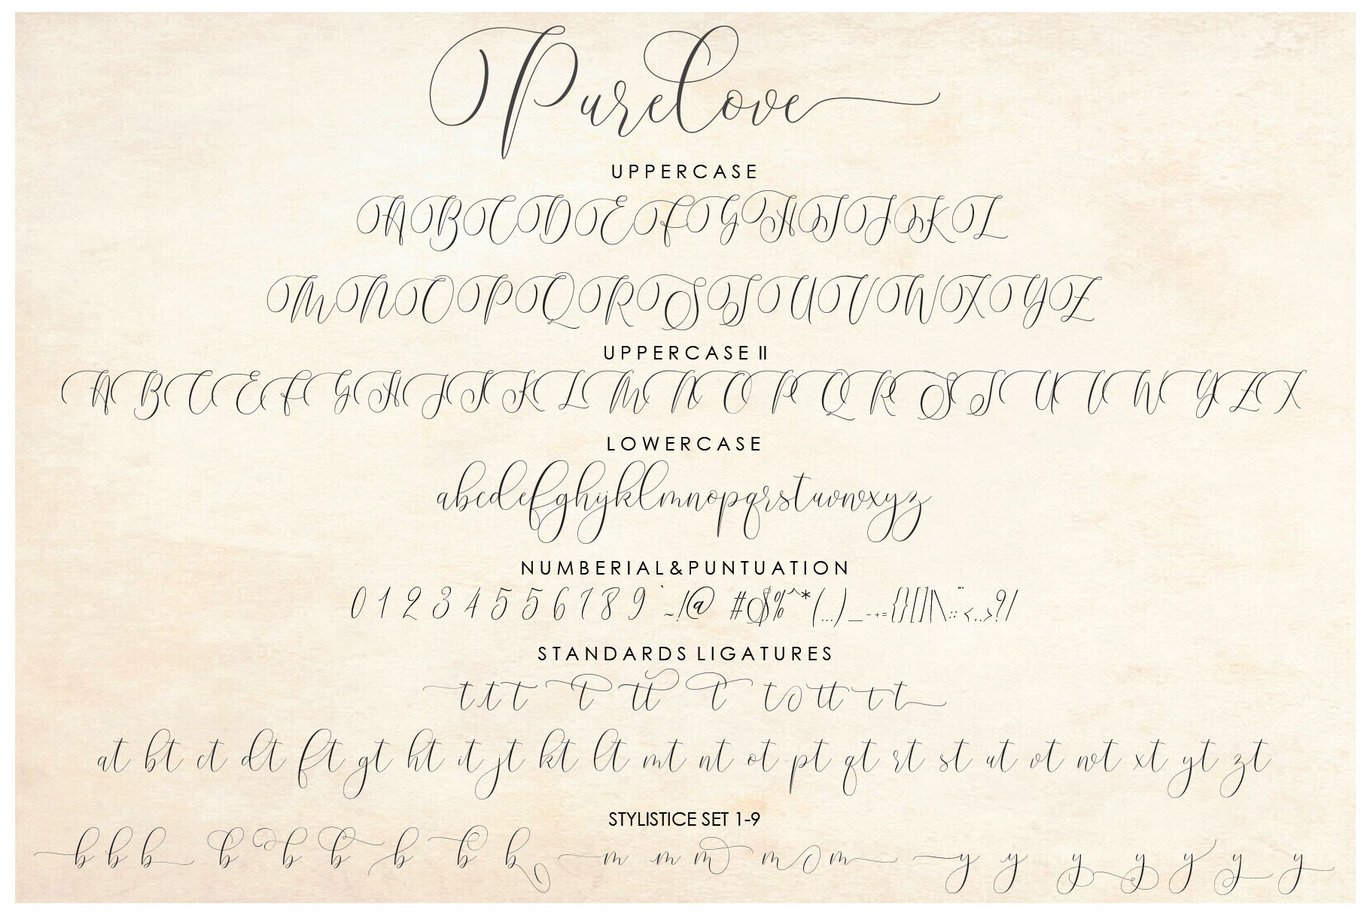 PureLove
UPPERCASE
ABCDEFGHIJKL
MNOPQRSTUVWXYZ
UPPERCASE II
ABCEFGHJIKLMNOPQRSTUVWYZX
LOWERCASE
abcdefghijklmnopqrstuvwxyz
NUMBERIAL&PUNTUATION
0 1 2 3 4 5 5 6 7 8 9 `~!@ #$%^*(...)_-+={}[]|\:;<..>?/
STANDARDS LIGATURES
t t t t tt t t o tt t t
at bt ct dt ft gt ht it jt kt lt mt nt ot pt qt rt st ut vt wt xt yt zt
STYLISTICE SET 1-9
b b b b b b b b b m m m m m y y y y y y y